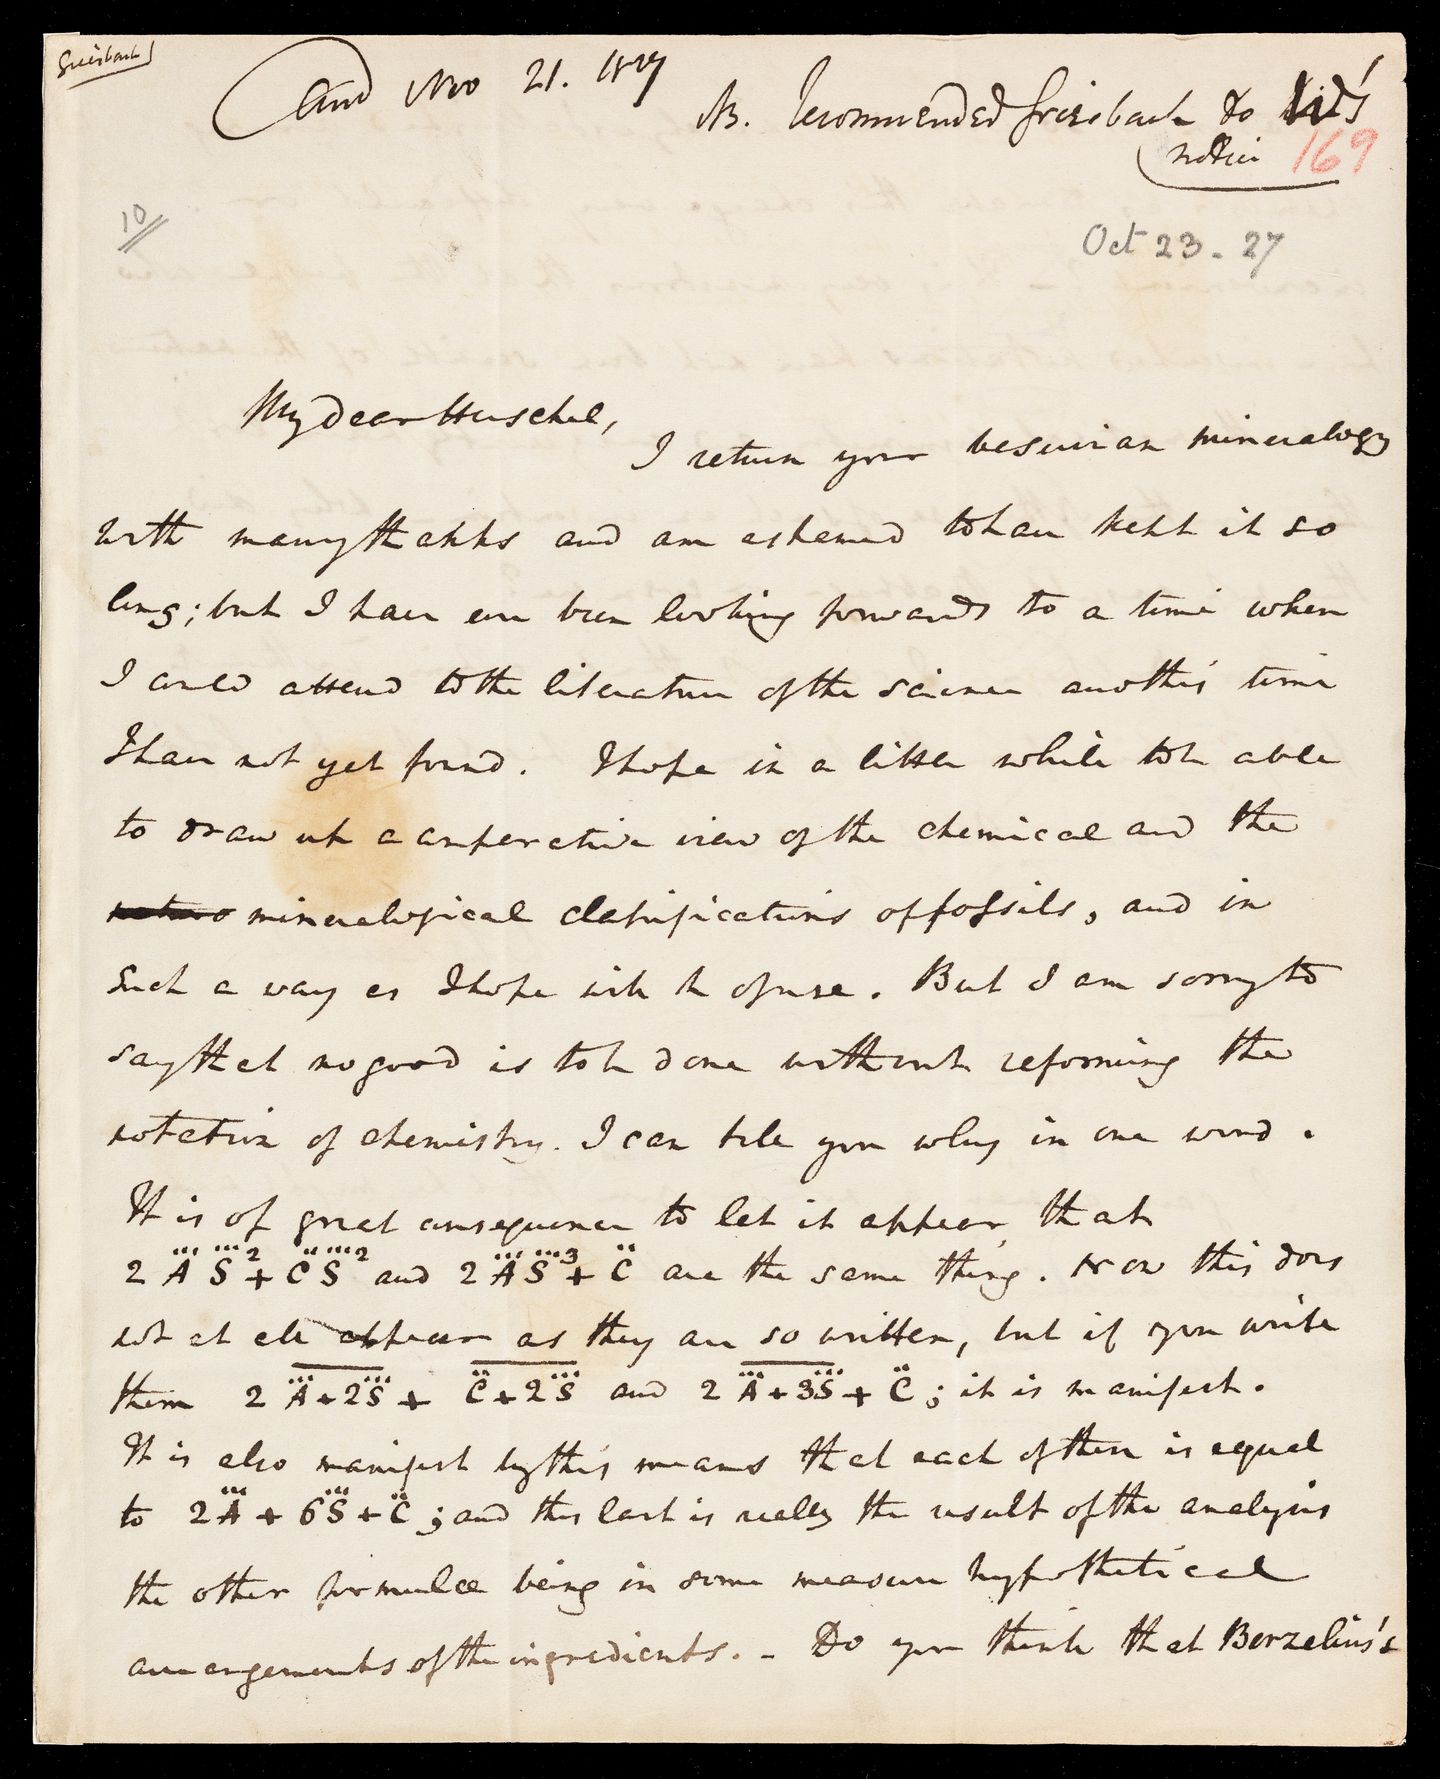 Griesbach
Ansd Nov 21. 1827
NB. Recommended Griesbach to his
notice 169
10
Oct 23 - 27
My dear Herschel,
I return your vesuvian mineralogy
with many thanks and am ashamed to have kept it so
long; but I have ever been looking forwards to a time when
I could attend to the literature of the science and this time
I have not yet found. I hope in a little while to be able
to draw up a comparative view of the chemical and the
mineralogical classifications of fossils, and in
such a way as I hope will be of use. But I am sorry to
say that no good is to be done without reforming the
notation of chemistry. I can tell you why in one word.
It is of great consequence to let it appear, that
2 A⃛ S⃛² + C̈ S⃛² and 2 A⃛ S⃛³ + C̈ are the same thing. Now this does
not at all appear as they are so written, but if you write
them 2 A⃛+2S⃛ + C̈+2S⃛ and 2 A⃛+3S⃛ + C̈; it is manifest.
It is also manifest by this means that each of them is equal
to 2A⃛ + 6S⃛ + C̈; and this last is really the result of the analysis
the other formulæ being in some measure hypothetical
arrangements of the ingredients. - Do you think that Berzelius's